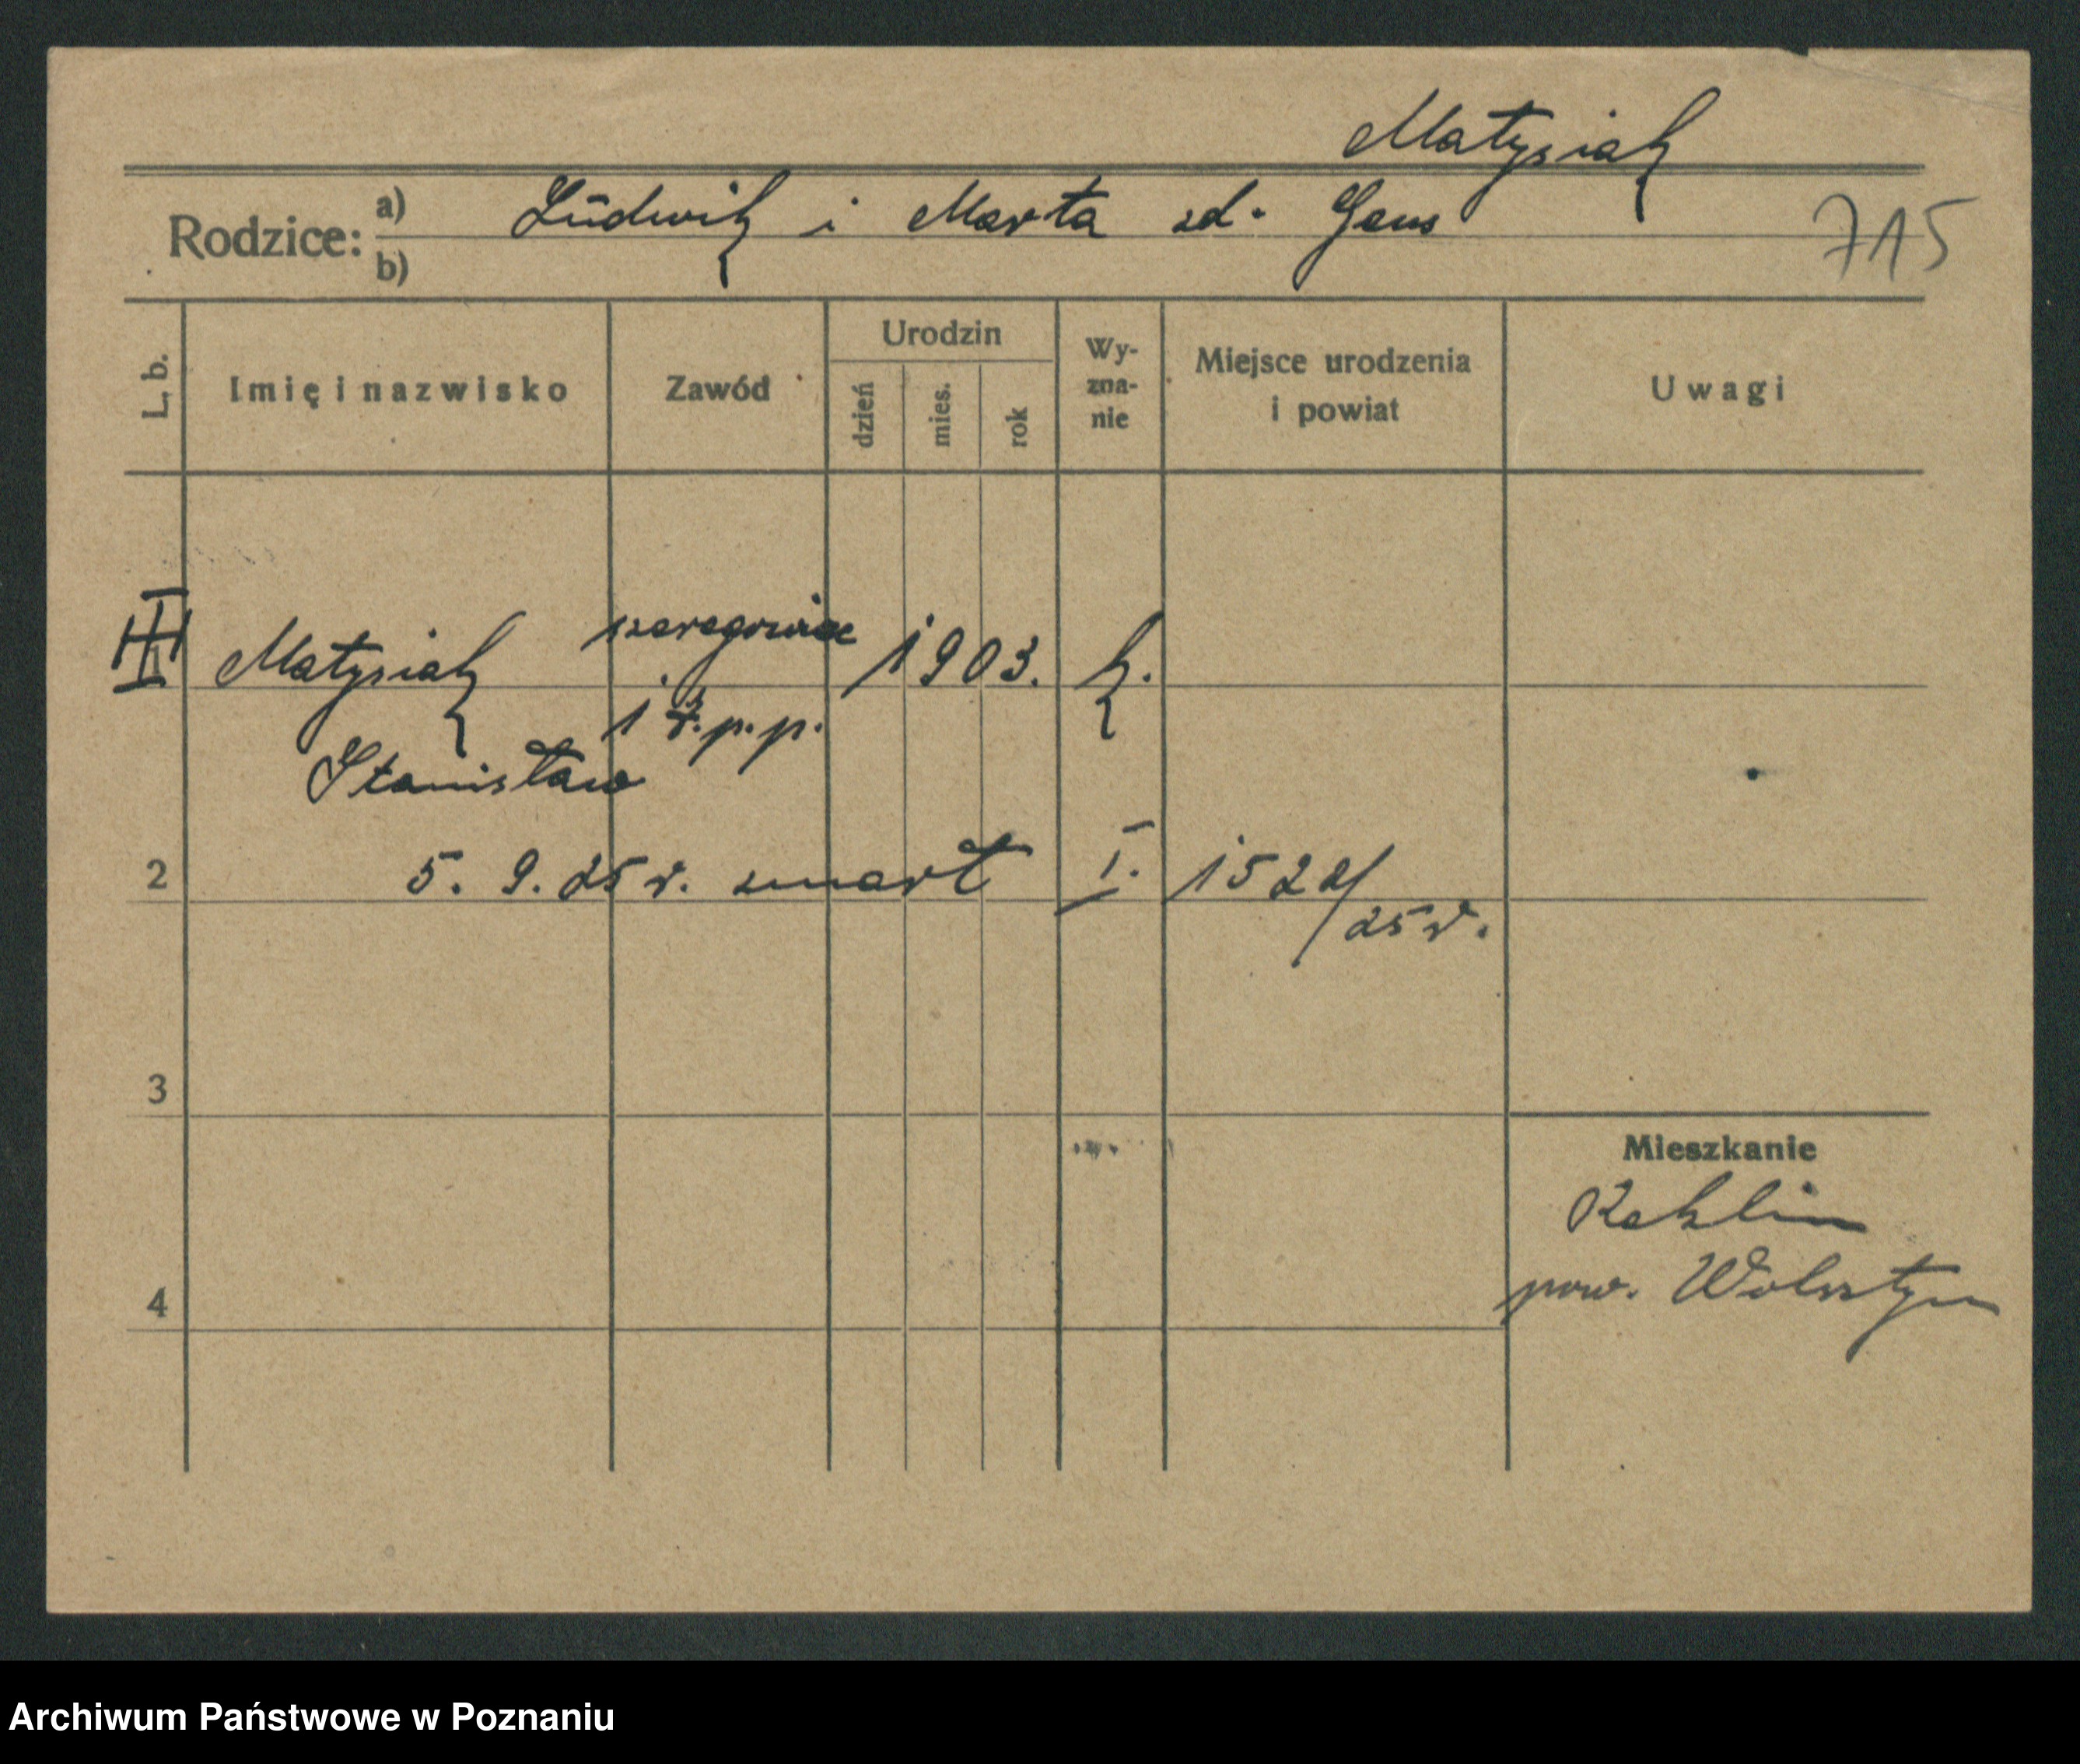 Matysiak
Rodzice: a) Ludwik i Marta zd. Gaus
b)
715
L. b.
Imię i nazwisko
Zawód
Urodzin
dzień
mies.
rok
Wy-
zna-
nie
Miejsce urodzenia
i powiat
Uwagi
1 Matysiak szeregowiec 1903. k.
p.p.
Stanisław
2 5. 9. 25 r. zmarł I. 1522/
25 r.
3
Mieszkanie
Reklin
pow. Wolsztyn
4
Archiwum Państwowe w Poznaniu